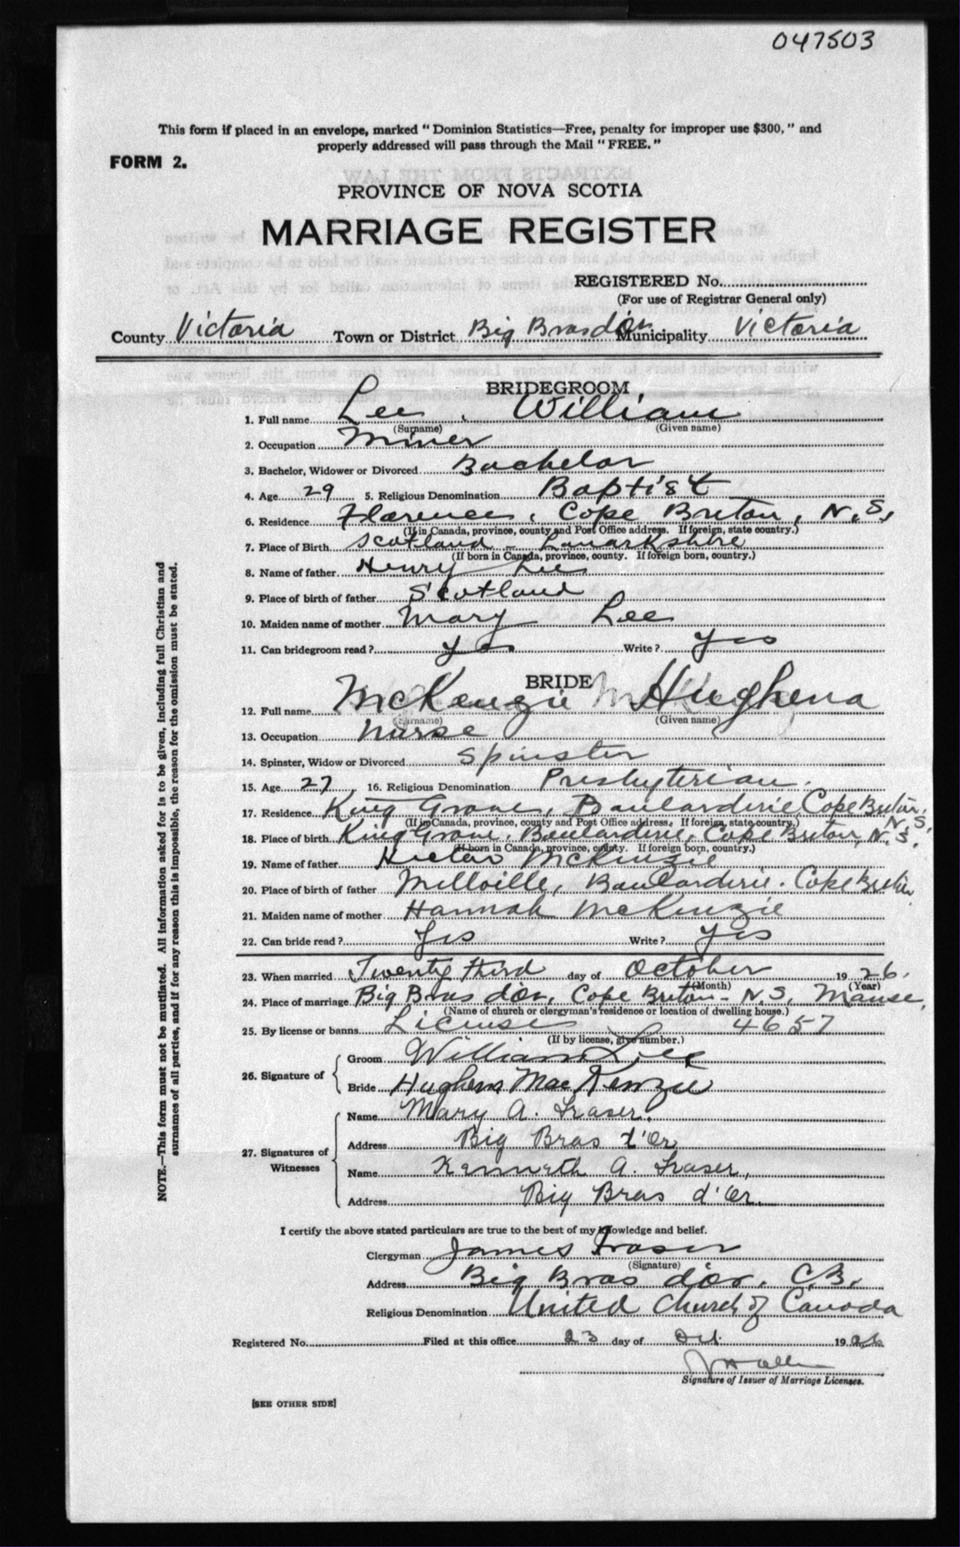 047503
This form if placed in an envelope, marked "Dominion Statistics—Free, penalty for improper use $300," and
properly addressed will pass through the Mail "FREE."
FORM 2.
PROVINCE OF NOVA SCOTIA
MARRIAGE REGISTER
REGISTERED No.
(For use of Registrar General only)
County Victoria Town or District Big Bras d'Or Municipality Victoria
BRIDEGROOM
1. Full name Lee, William
(Surname) (Given name)
2. Occupation Miner
3. Bachelor, Widower or Divorced Bachelor
4. Age 29 5. Religious Denomination Baptist
6. Residence Florence, Cape Breton, N.S.
(If in Canada, province, county and Post Office address. If foreign, state country.)
7. Place of Birth Scotland - Lanarkshire
(If born in Canada, province, county. If foreign born, country.)
8. Name of father Henry Lee
9. Place of birth of father Scotland
10. Maiden name of mother Mary Lee
11. Can bridegroom read? Yes Write? Yes
BRIDE
12. Full name McKenzie Hughena
(Surname) (Given name)
13. Occupation Nurse
14. Spinster, Widow or Divorced Spinster
15. Age 27 16. Religious Denomination Presbyterian.
17. Residence King Grove, Boularderie, Cape Breton, N.S.
(If in Canada, province, county and Post Office address. If foreign, state country.)
18. Place of birth King Grove, Boularderie, Cape Breton, N.S.
(If born in Canada, province, county. If foreign born, country.)
19. Name of father McKenzie
20. Place of birth of father Millville, Boularderie. Cape Breton
21. Maiden name of mother Hannah McKenzie
22. Can bride read? Yes Write? Yes
23. When married Twenty third day of October 1926.
(Month) (Year)
24. Place of marriage Big Bras d'or, Cape Breton - N.S. Manse,
(Name of church or clergyman's residence or location of dwelling house.)
25. By license or banns License 4657
(If by license, give number.)
26. Signature of Groom William Lee
Bride Hughena MacKenzie
27. Signatures of Witnesses Name Mary A. Fraser.
Address Big Bras d'Or
Name Kenneth A. Fraser,
Address Big Bras d'Or.
I certify the above stated particulars are true to the best of my knowledge and belief.
Clergyman James Fraser
(Signature)
Address Big Bras d'or. C.B.
Religious Denomination United Church of Canada
Registered No. Filed at this office 23 day of Oct. 1926
Signature of Issuer of Marriage Licenses.
[SEE OTHER SIDE]
NOTE.—This form must not be mutilated. All information asked for is to be given, including full Christian and
surnames of all parties, and if for any reason this is impossible, the reason for the omission must be stated.